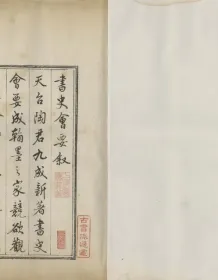 書史會要叙
天台陶君九成新著書史
會要成翰墨之家競欲觀
古書流通處